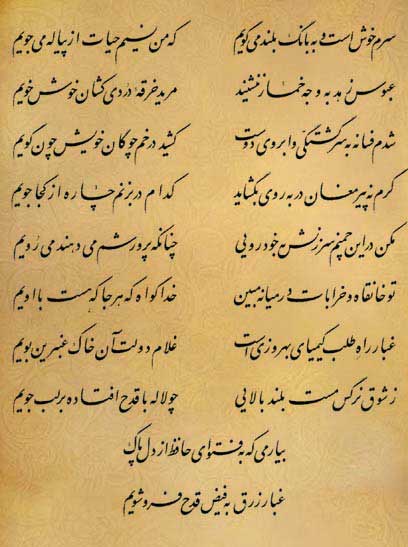 سرم خوش است و به بانگ بلند می گویم که من نسیم حیات از پیاله می جویم
عبوس زهد به وجه خمار ننشیند مرید خرقهٔ دردی کشان خوش خویم
شدم فسانه به سرگشتگی و ابروی دوست کشید در خم چوگان خویش چون گویم
گرم نه پیر مغان در به روی بگشاید کدام در بزنم چاره از کجا جویم
مکن در این چمنم سرزنش به خودرویی چنانکه پرورشم می دهند می رویم
تو خانقاه و خرابات در میانه مبین خدا گواه که هر جا که هست با اویم
غبار راه طلب کیمیای بهروزی است غلام دولت آن خاک عنبرین بویم
ز شوق نرگس مست بلند بالایی چو لاله با قدح افتاده بر لب جویم
بیار می که به فتوای حافظ از دل پاک
غبار زرق به فیض قدح فرو شویم